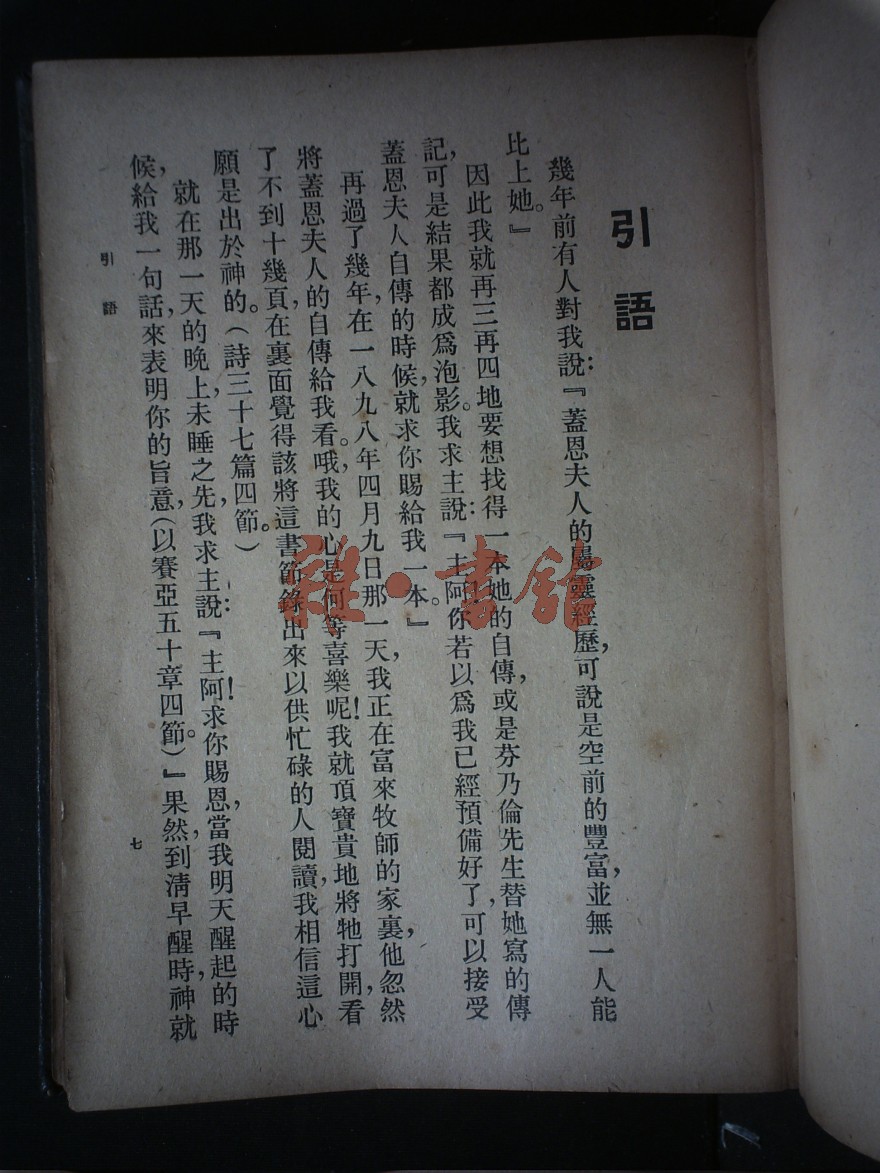 引語
幾年前有人對我說：『蓋恩夫人的屬靈經歷，可說是空前的豐富，並無一人能
比上她。』
因此我就再三再四地要想找得一本她的自傳，或是芬乃倫先生替她寫的傳
記，可是結果都成爲泡影。我求主說：『主阿，你若以爲我已經預備好了，可以接受
蓋恩夫人自傳的時候，就求你賜給我一本。』
再過了幾年，在一八九八年四月九日那一天，我正在富來牧師的家裏，他忽然
將蓋恩夫人的自傳給我看。哦，我的心是何等喜樂呢！我就頂寶貴地將牠打開，看
了不到十幾頁，在裏面覺得該將這書節錄出來，以供忙碌的人閱讀，我相信這心
願是出於神的。（詩三十七篇四節。）
就在那一天的晚上，未睡之先，我求主說：『主阿！求你賜恩，當我明天醒起的時
候，給我一句話，來表明你的旨意，（以賽亞五十章四節。）』果然，到淸早醒時，神就
引語
七
雜·書館